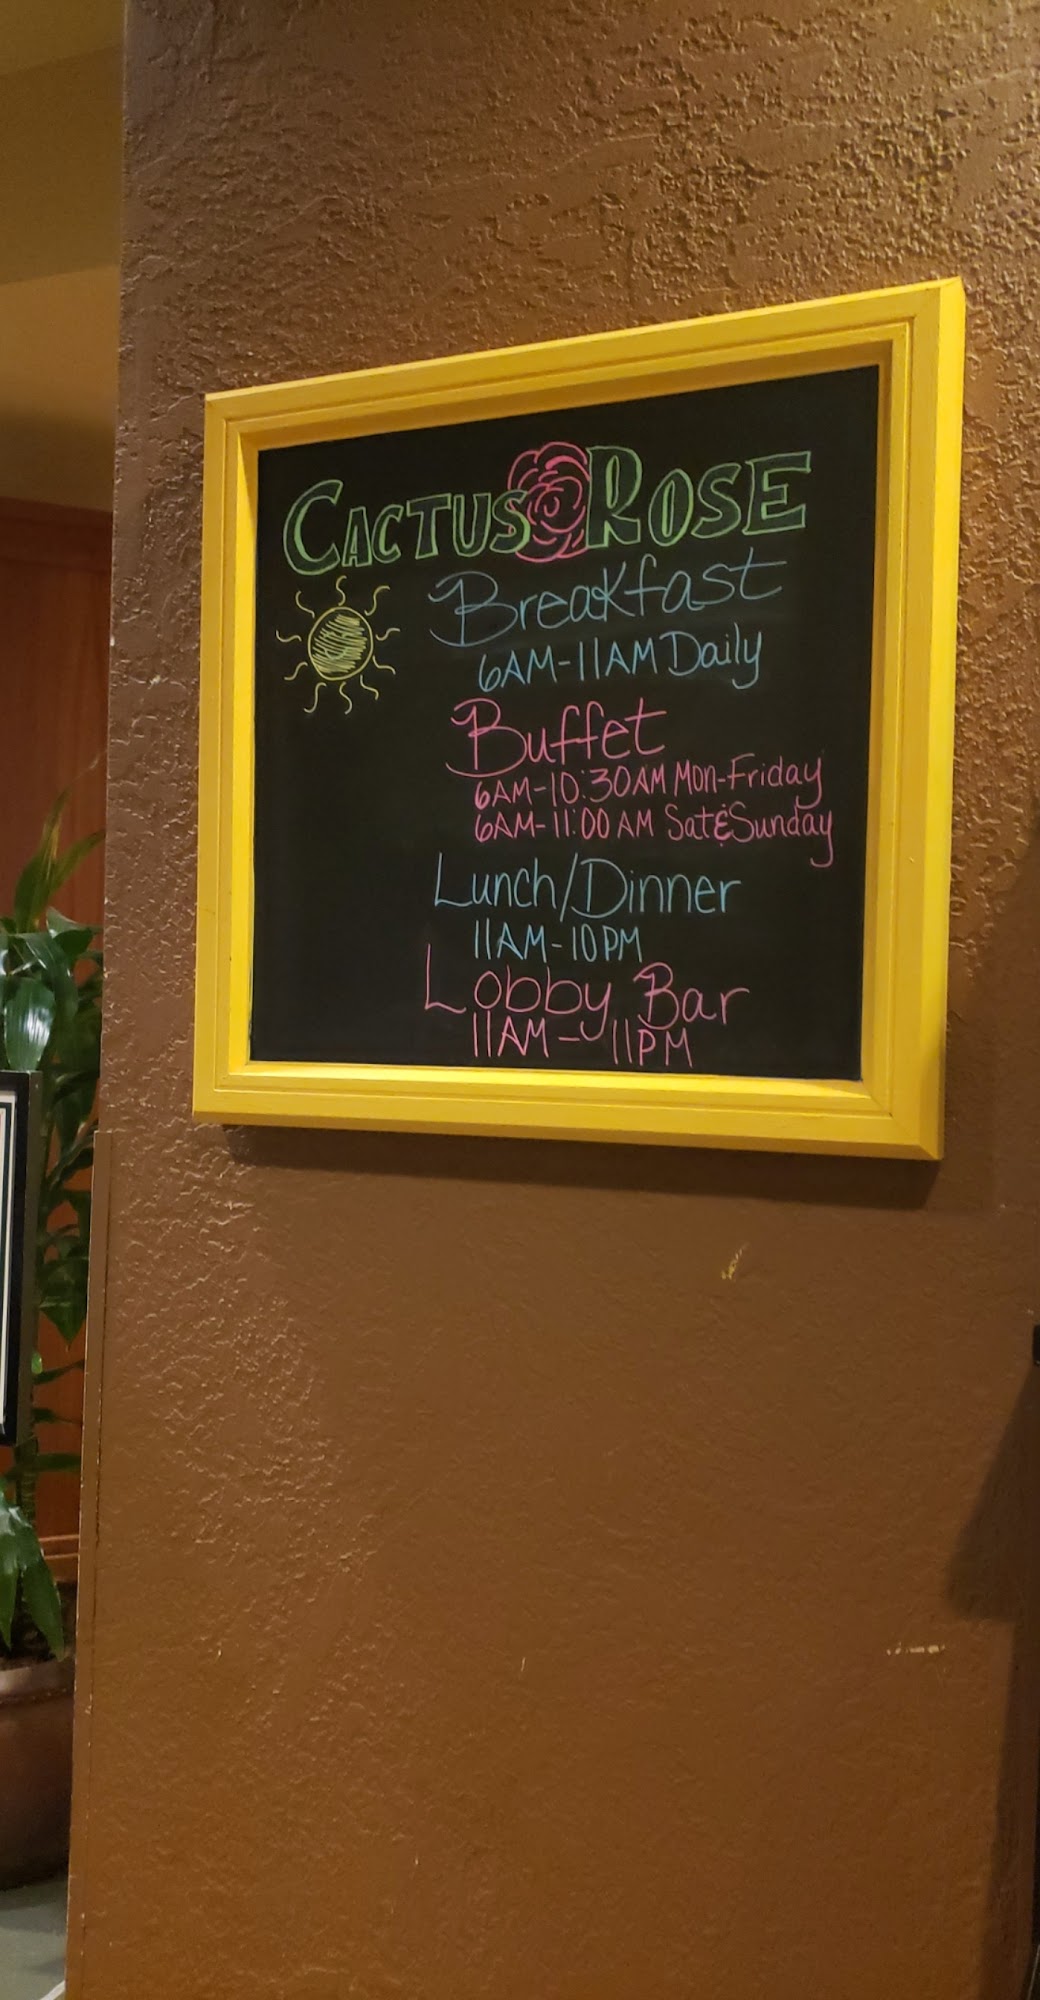 CACTUS ROSE
Breakfast
6AM-11AM Daily
Buffet
6AM-10:30AM Mon-Friday
6AM-11:00AM Sat&Sunday
Lunch/Dinner
11AM-10PM
Lobby Bar
11AM-11PM